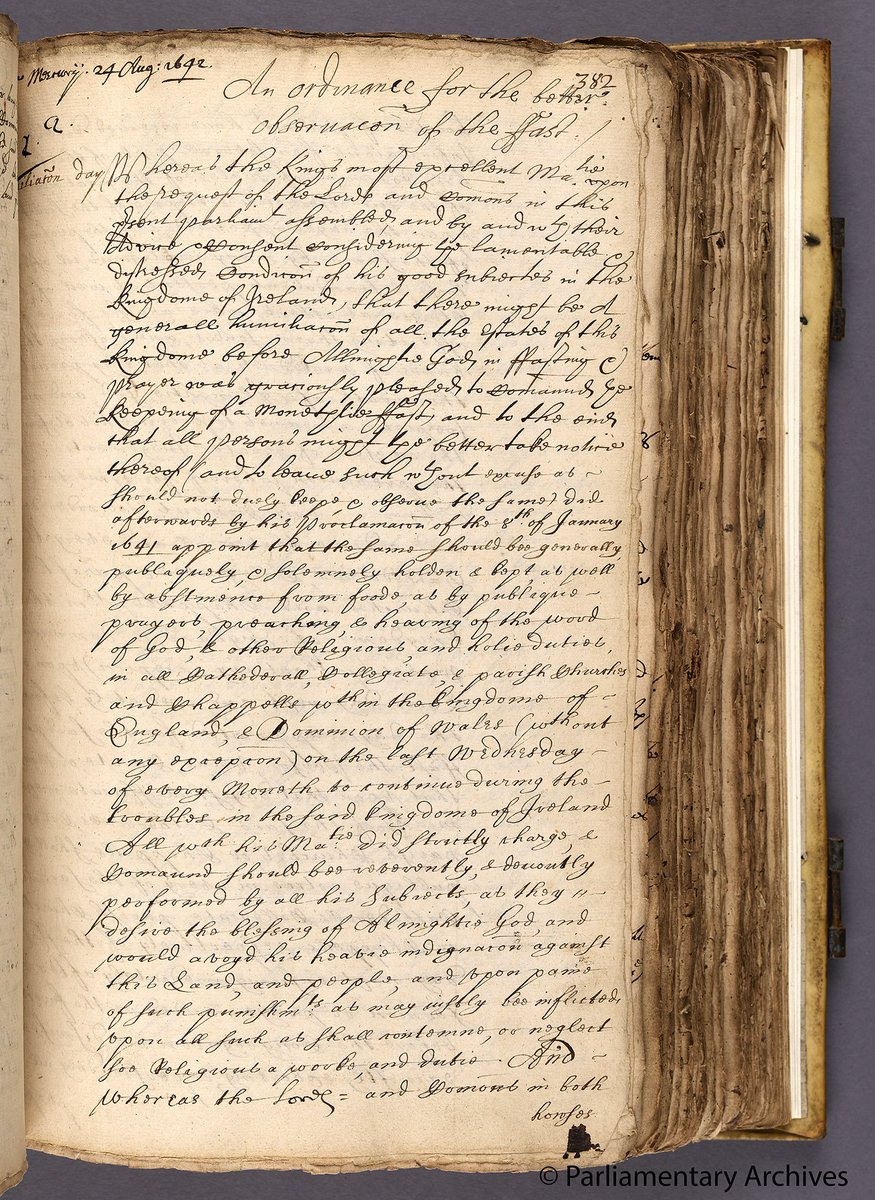 Mercurij. 24 Aug: 1642.
382
An ordinance for the better
observacon of the ffast.
2.
day
Whereas the Kings most excellent Ma:tie upon
the request of the Lords and Comons in this
psent Parliamt assembled, and by and wth their
Advice & Consent, Considering ye lamentable &
distressed Condicon of his good subiectes in the
Kingdome of Ireland, that there might be A
generall humiliacon of all the estates of this
Kingdome before Allmightie God, in ffasting &
Prayer was graciously pleased, to Comaund ye
keepeing of a Monethlie ffast, and to the end
that all Persons might ye better take notice
thereof (and to leaue such wthout excuse as
should not duely keepe, & obserue the same) did
afterwards by his Proclamacon of the 8th of January
1641 appoint that the same should bee generally
publiquely, & solemnely holden & kept, as well
by abstinence from foode, as by publique
prayers, preaching, & hearing of the word
of God, & other Religious, and holie duties,
in all Cathederall, Collegiate, & parish Churches
and Chappells wthin the Kingdome of
England, & Dominion of Wales (wthout
any excepcon) on the last Wednesday
of every Moneth to continue during the
troubles in the said Kingdome of Ireland
All wch his Ma:tie did strictly charge, &
Comaund should bee reverently, & devoutly
performed by all his Subiects, as they
desire the blessing of Almightie God, and
would avoyd his heavie indignacon against
this Land, and people, and upon paine
of such punishmts as may iustly bee inflicted
upon all such as shall contemne, or neglect
soe Religious a worke, and dutie. And
whereas the Lords = and Comons in both
howses
© Parliamentary Archives